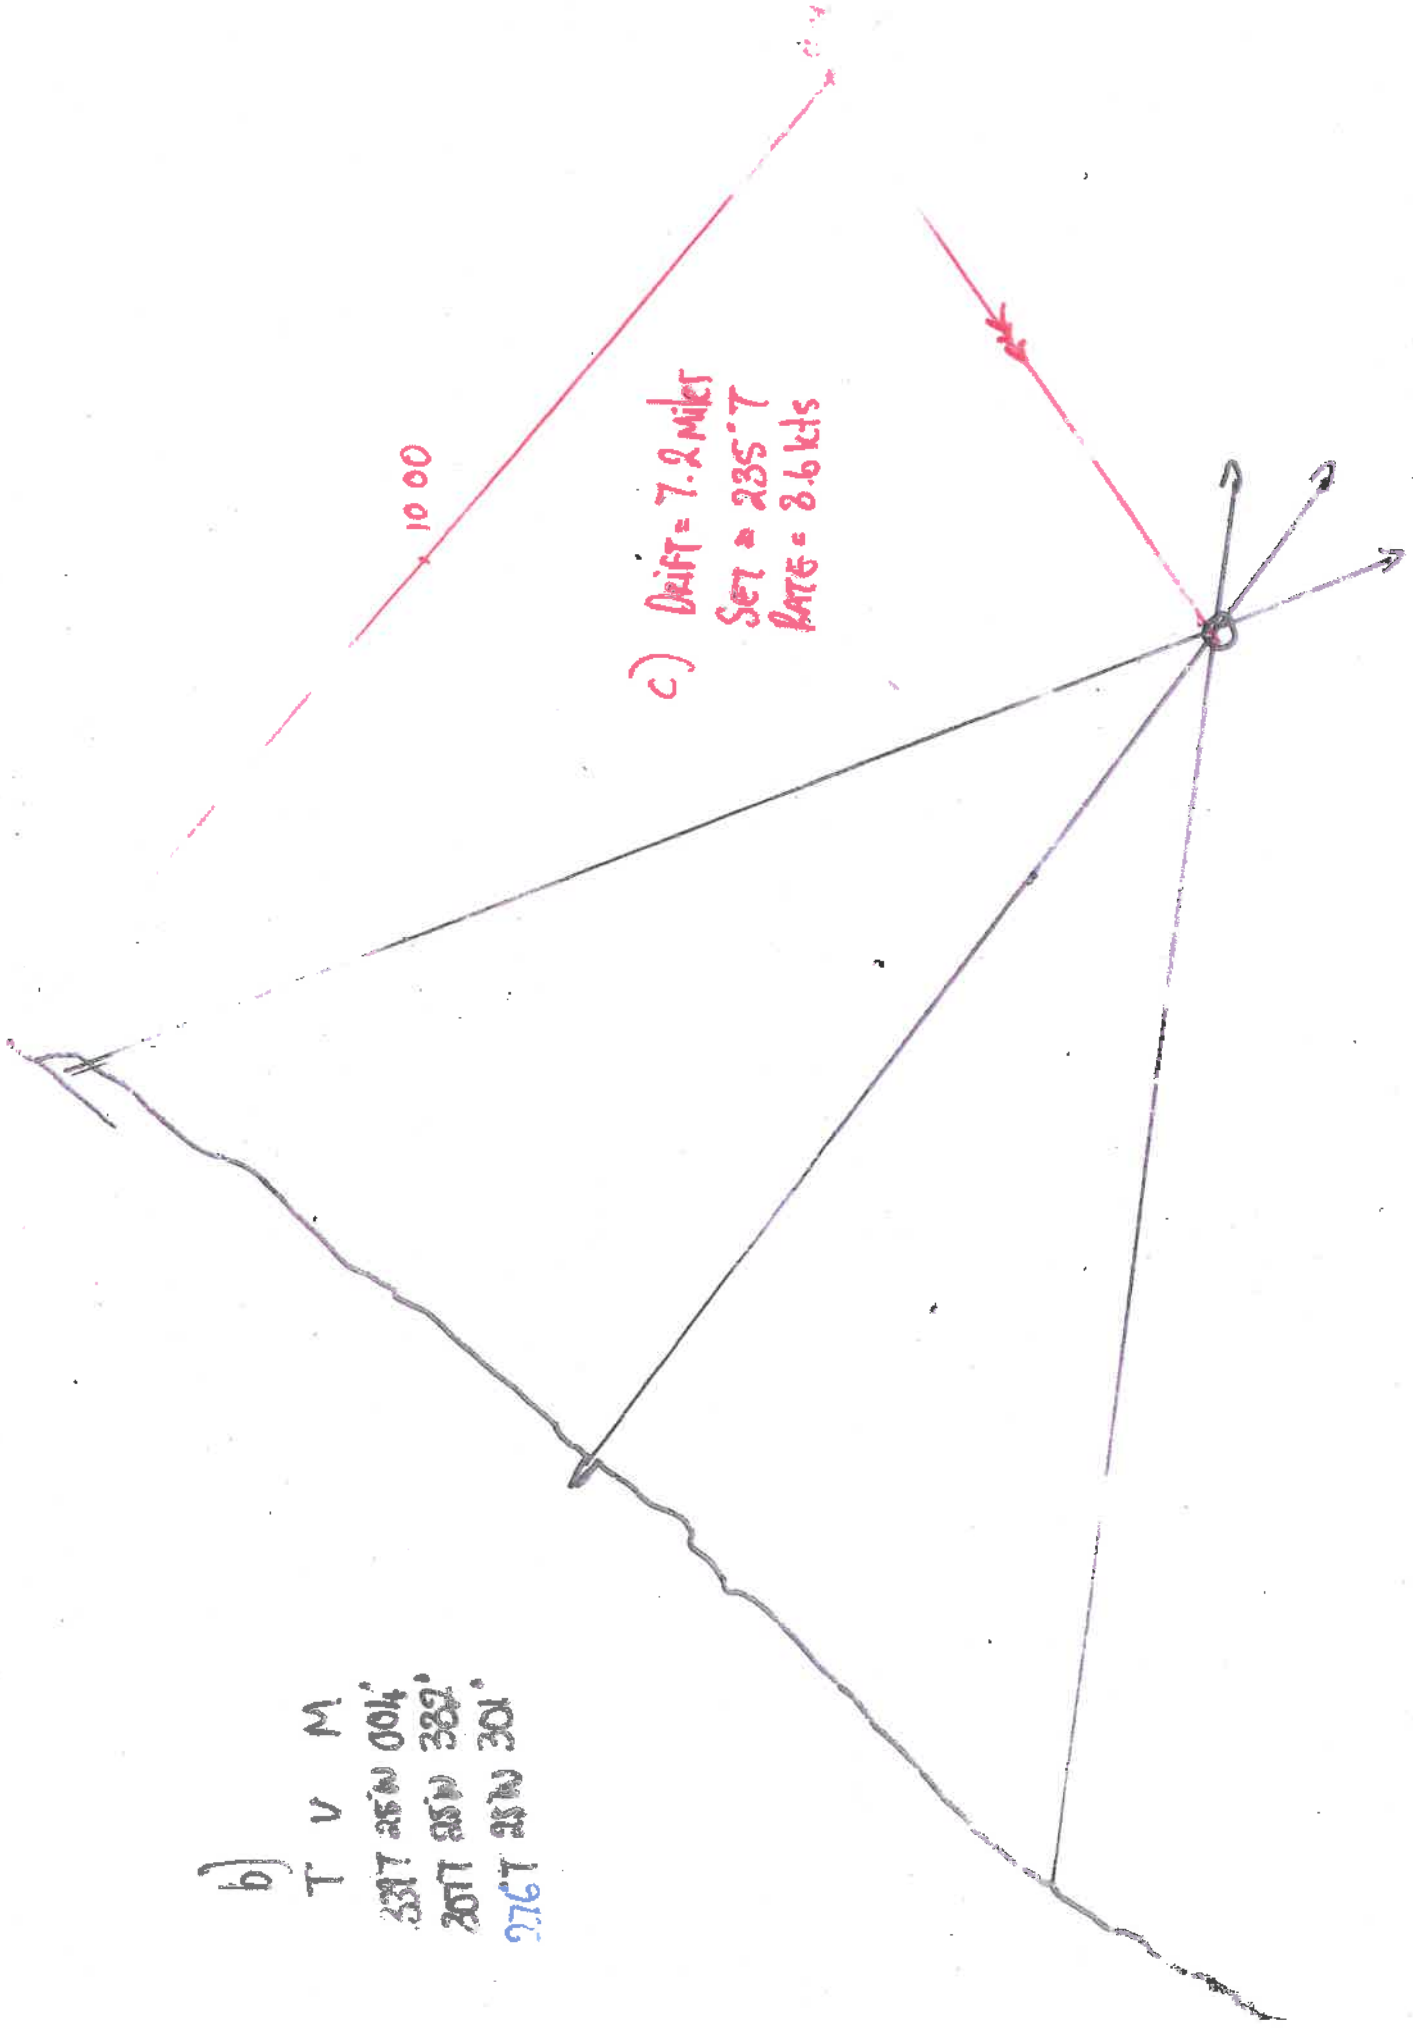 b)
T V M
339T 25W 004°
307T 25W 332°
276°T 25W 301°
1000
c) DRIFT = 7.2 Miles
SET = 235°T
RATE = 3.6 kts